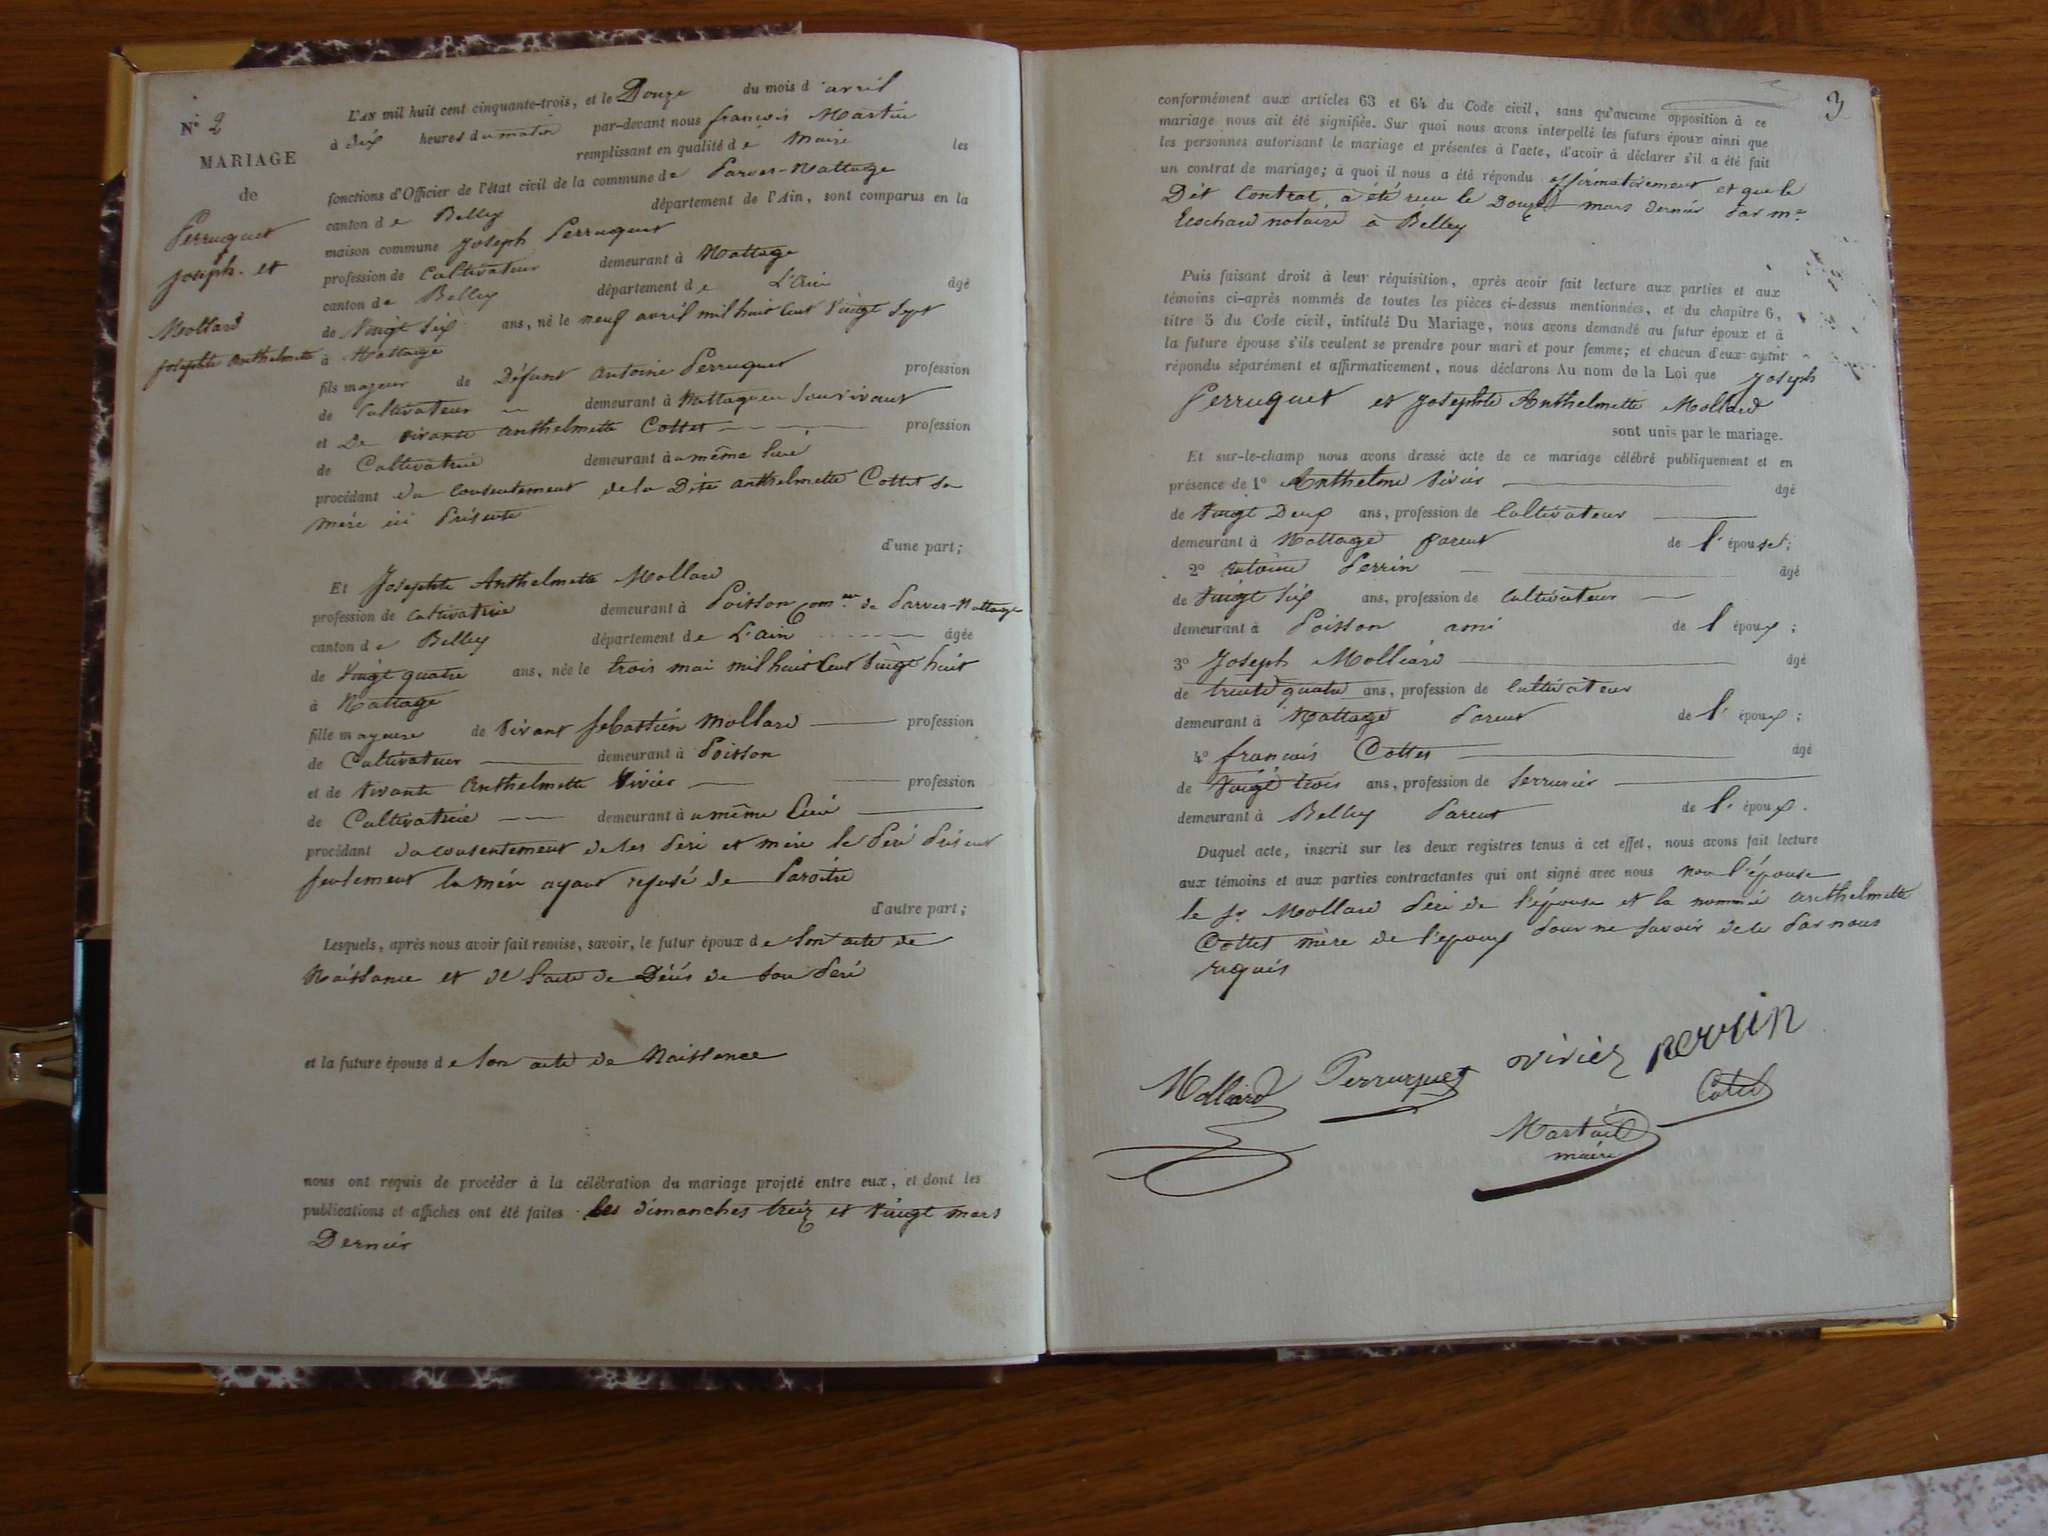 N° 2
MARIAGE
de
Perruquet
Joseph. et
Mollard
Josephte Anthelmette
L'AN mil huit cent cinquante-trois, et le Douze du mois d'avril
à dix heures du matin par-devant nous francois Martin
remplissant en qualité de Maire les
fonctions d'Officier de l'état civil de la commune de Parves-Nattage
canton de Belley département de l'Ain, sont comparus en la
maison commune Joseph Perruquet
profession de Cultivateur demeurant à Nattage
canton de Belley département de L'Ain âgé
de Vingt six ans, né le neuf avril mil huit Cent Vingt Sept
à Nattage
fils majeur de Défunt Antoine Perruquet profession
de Cultivateur demeurant à Nattage en Son vivant
et De vivante anthelmette Cottet profession
de Cultivatrice demeurant à même lieu
procédant du consentement de la Dite anthelmette Cottet sa
mère ici Présente
d'une part;
Et Josephte Anthelmette Mollard
profession de cultivatrice demeurant à Poisson Comne de Parves-Nattage
canton de Belley département de L'ain âgée
de Vingt quatre ans, née le trois mai mil huit Cent Vingt huit
à Nattage
fille majeure de vivant Sebastien Mollard profession
de Cultivateur demeurant à Poisson
et de vivante Anthelmette Vivier profession
de Cultivatrice demeurant à même lieu
procédant du consentement de ses Père et mère le Père Présent
seulement la mère ayant refusé de Paroitre
d'autre part;
Lesquels, après nous avoir fait remise, savoir, le futur époux de son acte de
Naissance et de l'acte de Décès de son Père
et la future épouse de son acte de Naissance
nous ont requis de procéder à la célébration du mariage projeté entre eux, et dont les
publications et affiches ont été faites les dimanches treize et vingt mars
Dernier
3
conformément aux articles 63 et 64 du Code civil, sans qu'aucune opposition à ce
mariage nous ait été signifiée. Sur quoi nous avons interpellé les futurs époux ainsi que
les personnes autorisant le mariage et présentes à l'acte, d'avoir à déclarer s'il a été fait
un contrat de mariage; à quoi il nous a été répondu affirmativement et que le
Dit Contrat à été reçu le Douze mars dernier Par me
notaire à Belley
Puis faisant droit à leur réquisition, après avoir fait lecture aux parties et aux
témoins ci-après nommés de toutes les pièces ci-dessus mentionnées, et du chapitre 6,
titre 5 du Code civil, intitulé Du Mariage, nous avons demandé au futur époux et à
la future épouse s'ils veulent se prendre pour mari et pour femme; et chacun d'eux ayant
répondu séparément et affirmativement, nous déclarons Au nom de la Loi que Joseph
Perruquet et Josephte Anthelmette Mollard
sont unis par le mariage.
Et sur-le-champ nous avons dressé acte de ce mariage célébré publiquement et en
présence de 1° Anthelme Vivier âgé
de Vingt Deux ans, profession de Cultivateur
demeurant à Nattage parent de l'épouse;
2° antoine Perrin âgé
de Vingt Six ans, profession de Cultivateur
demeurant à Poisson ami de l'époux;
3° Joseph Molliard âgé
de trente quatre ans, profession de Cultivateur
demeurant à Nattage Parent de l'époux;
4° francois Cottet âgé
de Vingt trois ans, profession de Serrurier
demeurant à Belley Parent de l'époux.
Duquel acte, inscrit sur les deux registres tenus à cet effet, nous avons fait lecture
aux témoins et aux parties contractantes qui ont signé avec nous non l'épouse
le Sr Mollard Père de l'épouse et la nommée anthelmette
Cottet mère de l'époux Pour ne savoir de ce Par nous
requis
Molliard Perruquet vivier perrin
Cotet
Martin
maire